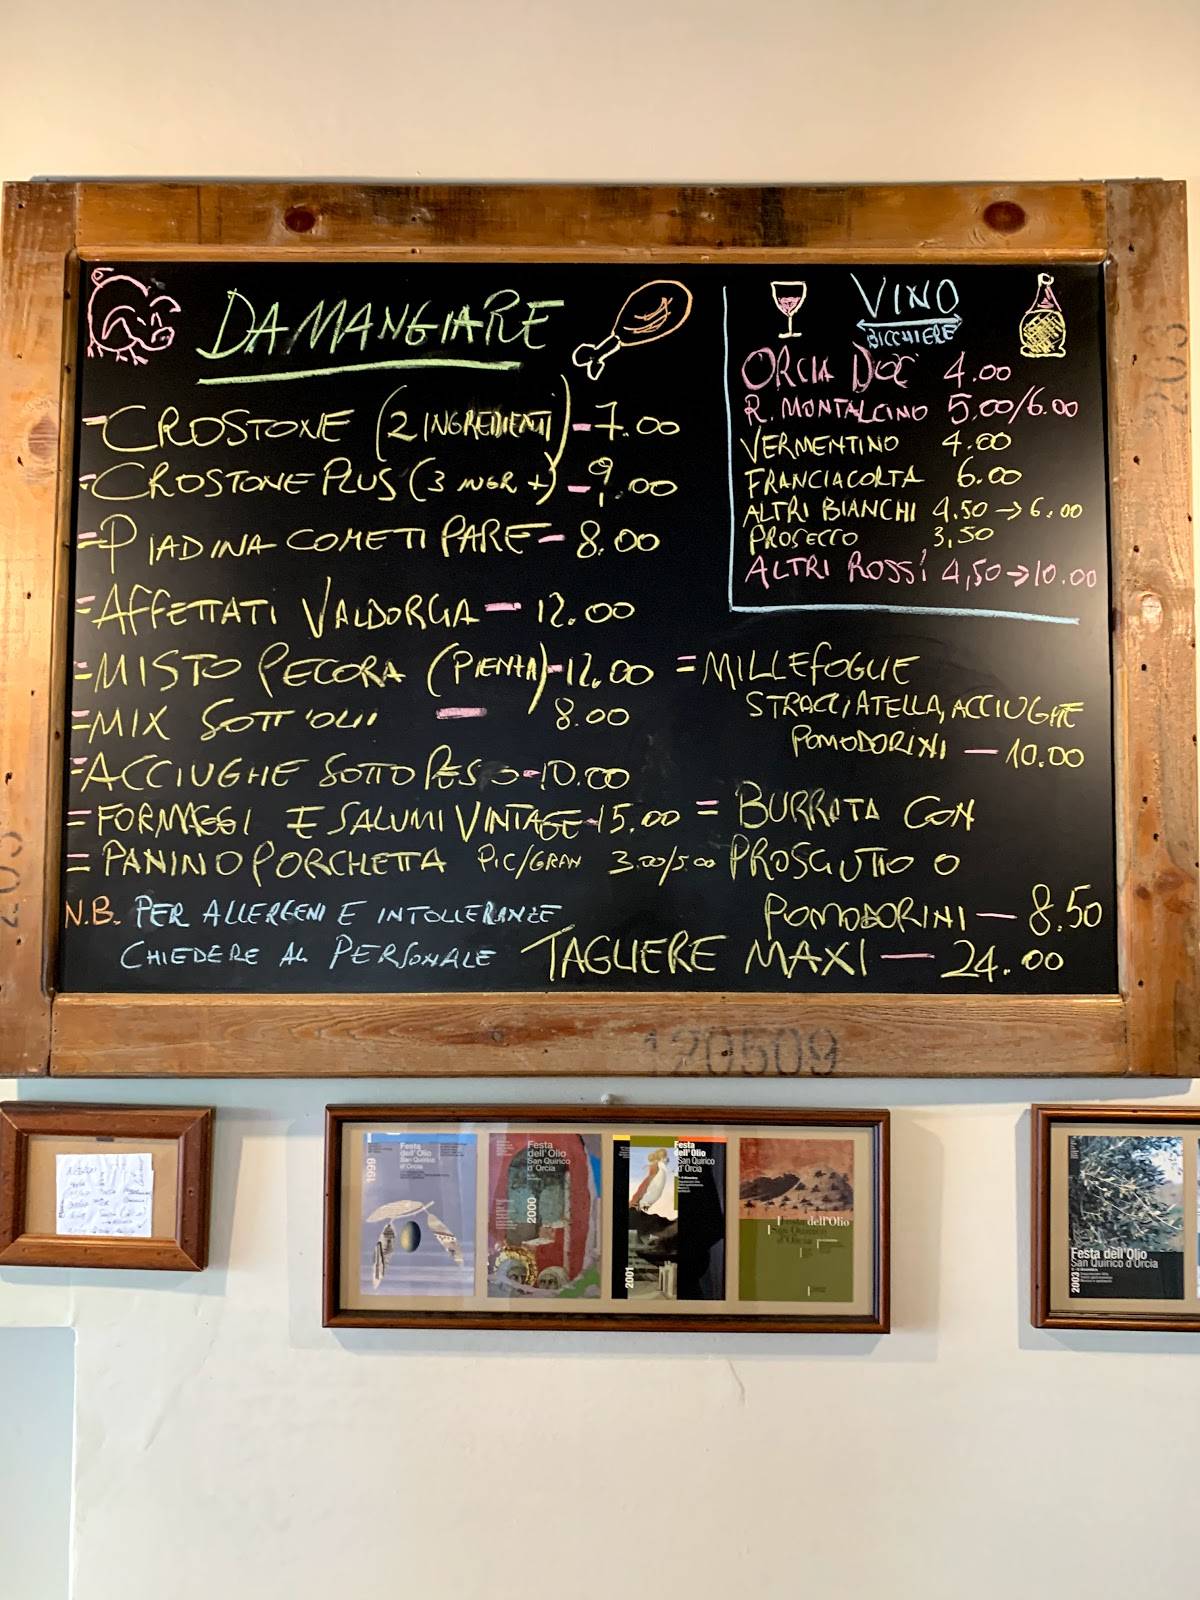 DA MANGIARE
- CROSTONE (2 INGREDIENTI) - 7.00
- CROSTONE PLUS (3 INGR +) - 9.00
= PIADINA COME TI PARE - 8.00
= AFFETTATI VALDORCIA - 12.00
= MISTO PECORA (PIENZA) - 12.00
= MIX SOTT'OLII - 8.00
= ACCIUGHE SOTTO PESO - 10.00
= FORMAGGI E SALUMI VINTAGE - 15.00
= PANINO PORCHETTA PIC/GRAN 3.00/5.00
N.B. PER ALLERGENI E INTOLLERANZE
CHIEDERE AL PERSONALE
VINO
BICCHIERE
ORCIA DOC 4.00
R. MONTALCINO 5.00/6.00
VERMENTINO 4.00
FRANCIACORTA 6.00
ALTRI BIANCHI 4.50 → 6.00
PROSECCO 3,50
ALTRI ROSSI 4,50 → 10.00
= MILLEFOGLIE
STRACCIATELLA, ACCIUGHE
POMODORINI - 10.00
= BURRATA CON
PROSCIUTTO O
POMODORINI - 8.50
TAGLIERE MAXI - 24.00
120509
203
1999
Festa
dell'Olio
San Quirico
d'Orcia
Festa
dell'Olio
San Quirico
d'Orcia
2000
Festa
dell'Olio
San Quirico
d'Orcia
2001
Festa dell'Olio
San Quirico
d'Orcia
Festa dell'Olio
San Quirico d'Orcia
2003